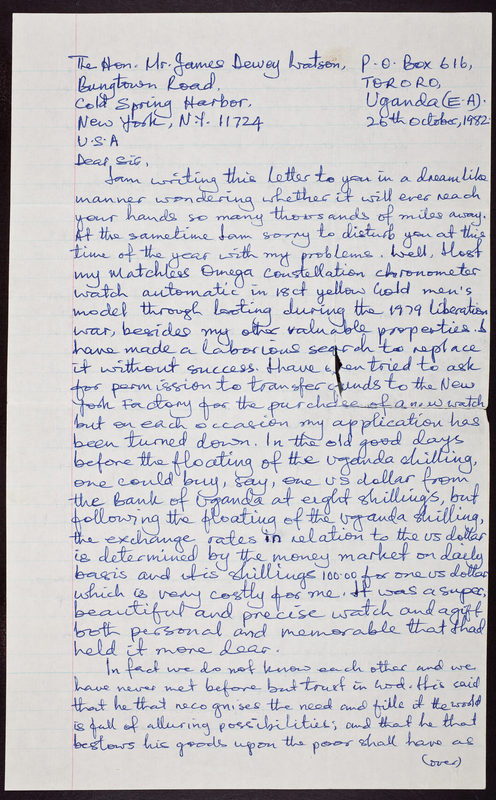 The Hon. Mr. James Dewey Watson, P.O. Box 616,
Bungtown Road, TORORO,
Cold Spring Harbor, Uganda (E.A).
New York, N.Y. 11724 26th October, 1982
U.S.A
Dear Sir,
I am writing this letter to you in a dreamlike
manner wondering whether it will ever reach
your hands so many thousands of miles away.
At the sametime I am sorry to disturb you at this
time of the year with my problems. Well, I lost
my Matchless Omega Constellation chronometer
watch automatic in 18ct yellow Gold men's
model through looting during the 1979 liberation
war, besides my other valuable properties. I
have made a laborious search to replace
it without success. I have even tried to ask
for permission to transfer funds to the New
York Factory for the purchase of a new watch
but on each occasion my application has
been turned down. In the old good days
before the floating of the Uganda shilling,
one could buy, say, one US dollar from
the Bank of Uganda at eight shillings, but
following the floating of the Uganda shilling,
the exchange rates in relation to the US dollar
is determined by the money market on daily
basis and it is shillings 100.00 for one US dollar
which is very costly for me. It was a super,
beautiful and precise watch and a gift
both personal and memorable that I had
held it more dear.
In fact we do not know each other and we
have never met before but trust in God. It is said
that he that recognises the need and fills of the world
is full of alluring possibilities; and that he that
bestows his goods upon the poor shall have as
(over)